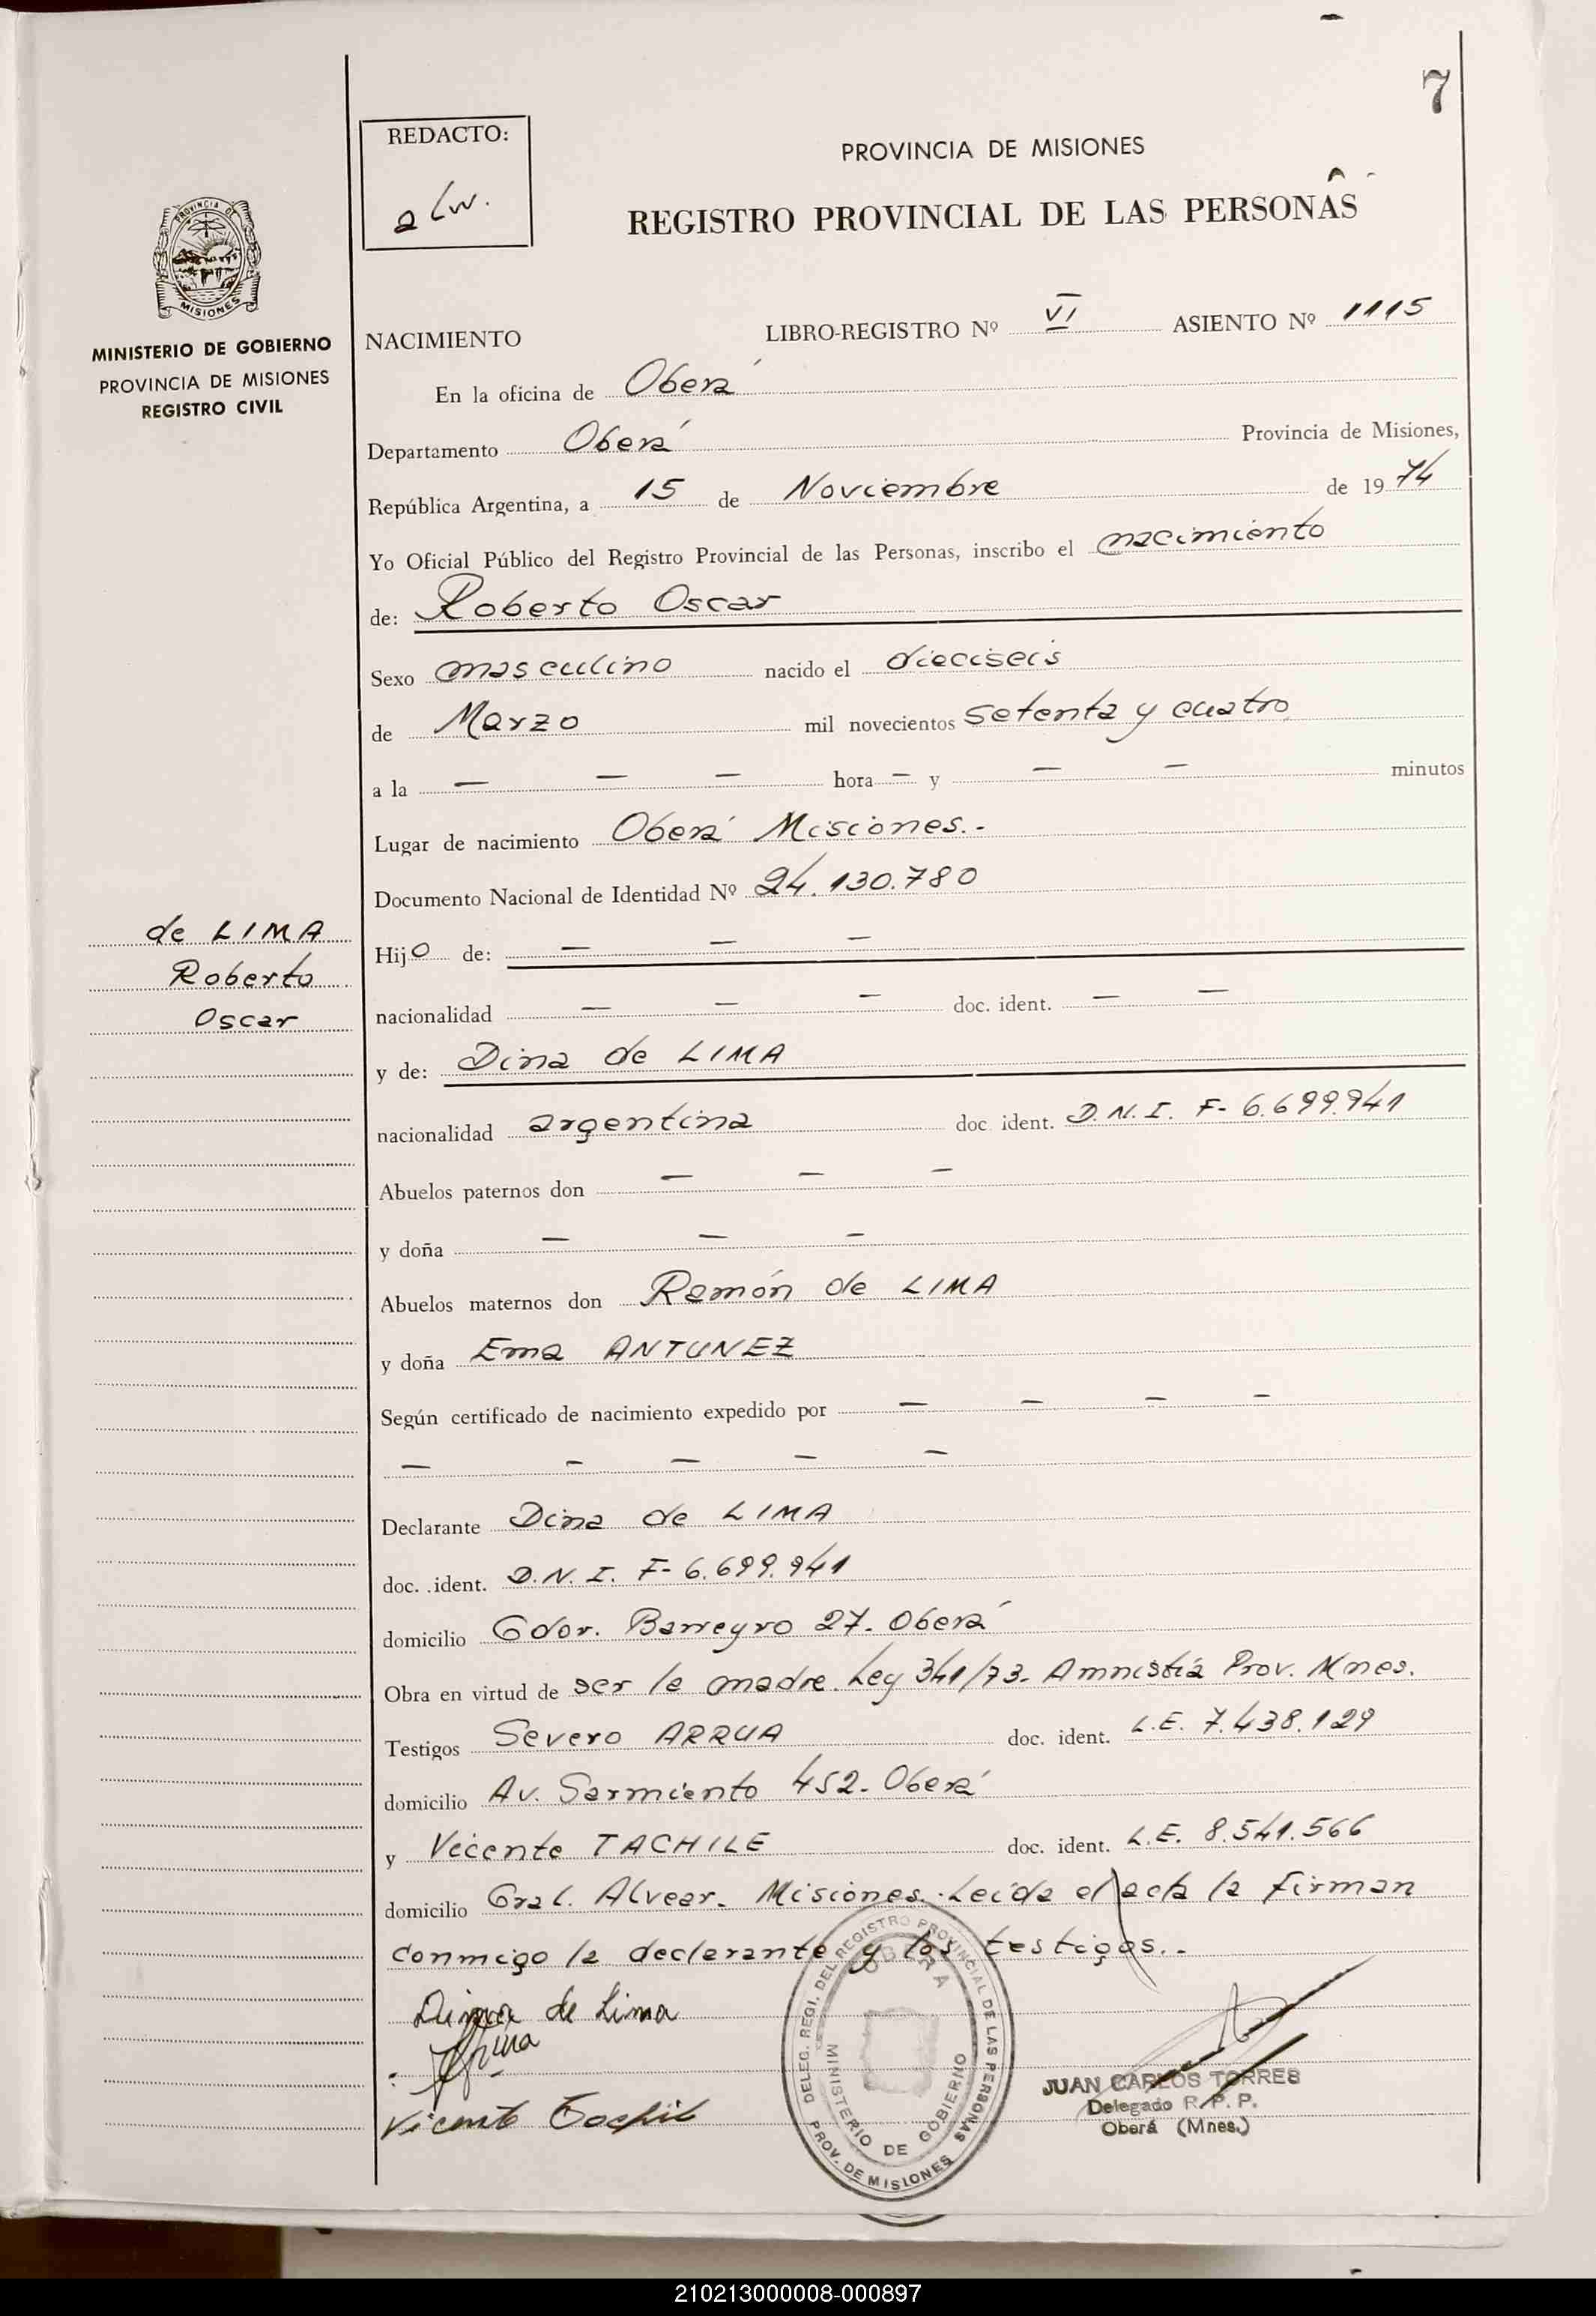 7
REDACTO:
PROVINCIA DE MISIONES
REGISTRO PROVINCIAL DE LAS PERSONAS
PROVINCIA DE
MISIONES
MINISTERIO DE GOBIERNO
PROVINCIA DE MISIONES
REGISTRO CIVIL
NACIMIENTO LIBRO-REGISTRO Nº VI ASIENTO Nº 1115
En la oficina de Oberá
Departamento Oberá Provincia de Misiones,
República Argentina, a 15 de Noviembre de 1974
Yo Oficial Público del Registro Provincial de las Personas, inscribo el nacimiento
de: Roberto Oscar
Sexo masculino nacido el dieciseis
de Marzo mil novecientos setenta y cuatro
a la — — — hora — y — — minutos
Lugar de nacimiento Oberá Misiones.-
Documento Nacional de Identidad Nº 24.130.780
de LIMA
Roberto
Oscar
Hijo de: — — —
nacionalidad — — — doc. ident. — —
y de: Dina de LIMA
nacionalidad argentina doc ident. D.N.I. F- 6.699.941
Abuelos paternos don — — —
y doña — — —
Abuelos maternos don Ramón de LIMA
y doña Ema ANTUNEZ
Según certificado de nacimiento expedido por — — — —
— — — — —
Declarante Dina de LIMA
doc. ident. D.N.I. F- 6.699.941
domicilio Gdor. Barreyro 27. Oberá
Obra en virtud de ser la madre. Ley 341/73- Amnistía Prov. Mnes.
Testigos Severo ARRUA doc. ident. L.E. 7.438.129
domicilio Av. Sarmiento 452- Oberá
y Vicente TACHILE doc. ident. L.E. 8.541.566
domicilio Gral. Alvear. Misiones. Leída el acta la firman
conmigo la declarante y los testigos.-
Dina de Lima
Vicente
DELEG. REGI. DEL REGISTRO PROVINCIAL DE LAS PERSONAS
OBERA
MINISTERIO DE GOBIERNO
PROV. DE MISIONES
JUAN CARLOS TORRES
Delegado R. P. P.
Oberá (Mnes.)
210213000008-000897